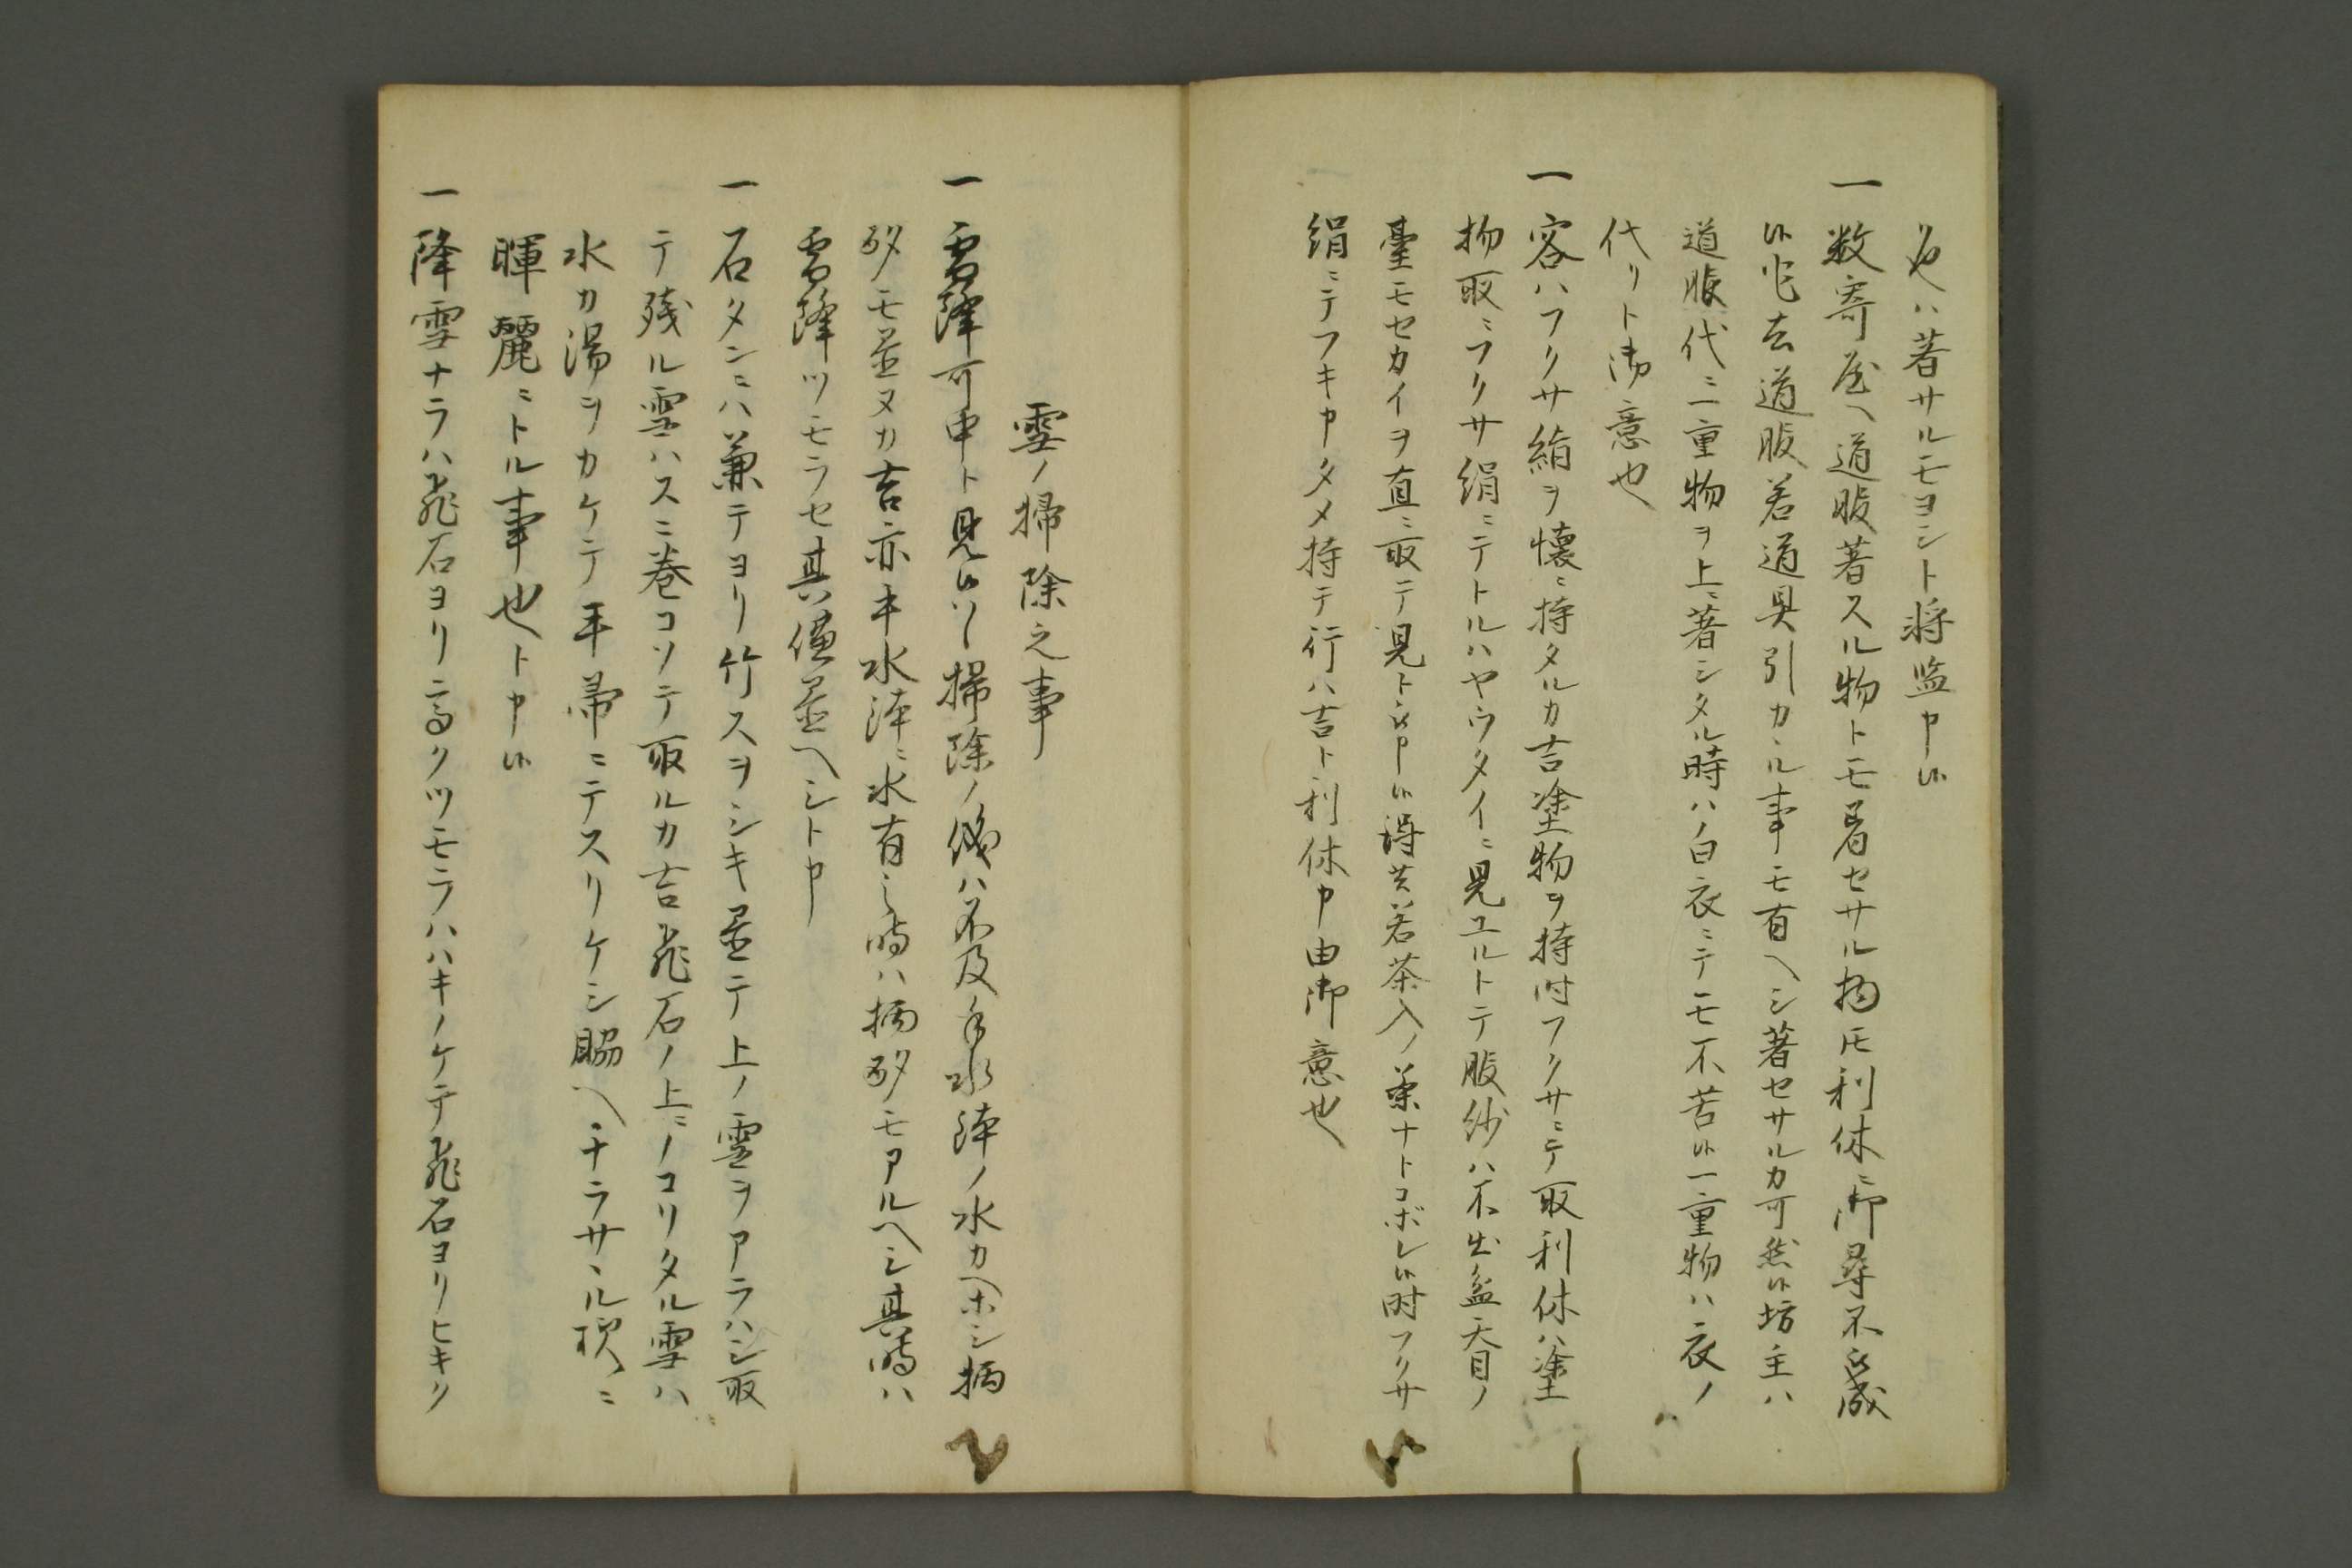 ハ著サルモヨシト将監申候
一 数寄屋ヘ道服著スル物トモ著セサル物トモ利休ニ御尋不被成
候乍去道服若道具引カヽル事モ有ヘシ著セサルカ可然候坊主ハ
道服代ニ一重物ヲ上ニ著シタル時ハ白衣ニテモ不苦候一重物ハ衣ノ
代リト御意也
一 客ハフクサ絹ヲ懐ニ持タルカ吉塗物ヲ持時フクサニテ取利休ハ塗
物取ニフクサ絹ニテトルハヤウタイニ見ユルトテ服紗ハ不出盆天目ノ
臺モセカイヲ直ニ取テ見ト被申候得共若茶入ノ茶ナトコボレ候時フクサ
絹ニテフキ申タメ持テ行ハ吉ト利休申由御意也
雪ノ掃除之事
一 雪降可申ト見候ハヽ掃除ノ儀ハ不及手水鉢ノ水カヘホシ柄
杓モ置ヌカ吉亦手水鉢ニ水有之時ハ柄杓モアルヘシ其時ハ
雪降ツモラセ其儘置ヘシト申
一 石タンニハ兼テヨリ竹スヲシキ置テ上ノ雪ヲアラハシ取
テ残ル雪ハスニ巻コソテ取ルカ吉飛石ノ上ニノコリタル雪ハ
水カ湯ヲカケテ手帚ニテスリケシ脇ヘチラサヽル様ニ
暉麗ニトル事也ト申候
一 降雪ナラハ飛石ヨリ高クツモラハハキノケテ飛石ヨリヒキク